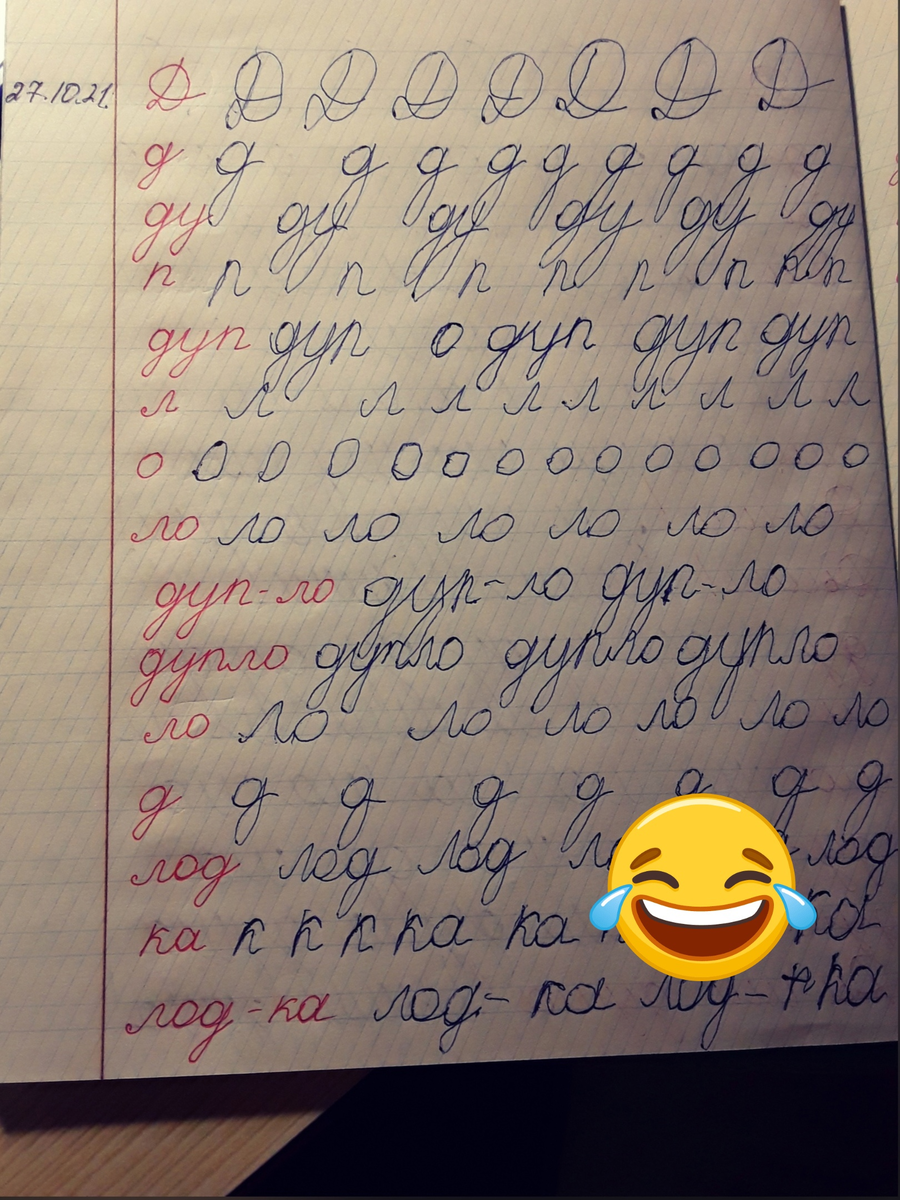 27.10.21. Д Д Д Д Д Д Д Д
д д д д д д д д д д
ду ду ду ду ду ду
п п п п п п п п п
дуп дуп о дуп дуп дуп
л л л л л л л л л л
о о о о о о о о о о о о о
ло ло ло ло ло ло ло
дуп-ло дуп-ло дуп-ло
дупло дупло дупло дупло
ло ло ло ло ло ло ло
д д д д д д д д
лод лод лод лод
ка к к к ка ка ка
лод-ка лод- ка лод- ка